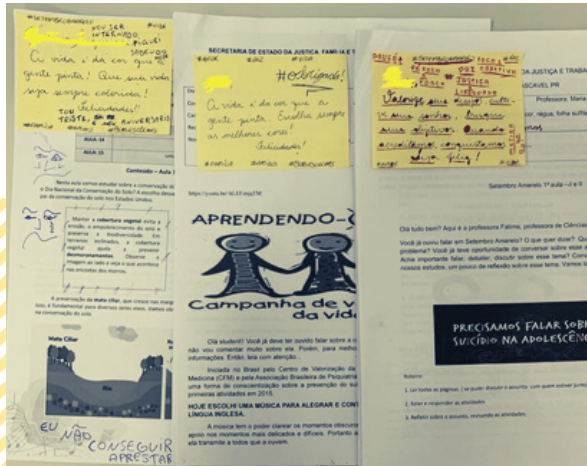 #SETEMBROAMARELO #VIDA
VOU SER
INTERNADO
FIQUEI
SABENDO
A vida é da cor que a
gente pinta! Que sua vida
seja sempre colorida!
Felicidades!!
TOM
TRISTE, É MEU ANIVERSÁRIO
#FAMÍLIA #AMIGOS
AULA: 14
AULA: 15
Conteúdo – Aula 1
Nesta aula vamos estudar sobre a conservação d
o Dia Nacional da Conservação do Solo? A escolha desse
pai da conservação do solo nos Estados Unidos.
Manter a cobertura vegetal evita a
erosão, o empobrecimento do solo e
preserva a biodiversidade. Em
terrenos inclinados, a cobertura
vegetal ajuda a prevenir
desmoronamentos. Observe a
imagem ao lado e veja o que acontece
nas encostas dos morros.
A preservação da mata ciliar, que cresce nas marg
isso, é fundamental para diversos seres vivos. Vamos
na conservação do solo.
Mata Ciliar
Rio
EU NÃO CONSEGUIR
APRESTAR
SECRETARIA DE ESTADO DA JUSTIÇA, FAMÍLIA E T
#PAZ #VIDA
#obrigada!
A vida é da cor que a
gente pinta. Escolha sempre
as melhores cores!
Felicidades!
#FAMÍLIA #AMIGOS
https://youtu.be/
APRENDENDO-
Campanha de v
da vida
Olá student! Você já deve ter ouvido falar sobre o
não vou comentar muito sobre ela. Porém, para melho
informações. Então, leia com atenção...
Iniciada no Brasil pelo Centro de Valorização da
Medicina (CFM) e pela Associação Brasileira de Psiquiatria
uma forma de conscientização sobre a prevenção do sui
primeiras atividades em 2015.
HOJE ESCOLHI UMA MÚSICA PARA ALEGRAR E CONT
LÍNGUA INGLESA.
A música tem o poder clarear os momentos obscuro
apoio nos momentos mais delicados e difíceis. Portanto a
ela transmite a todos que a ouvem.
#SETEMBROAMARELO
JUSTIÇA
LIBERDADE
Valorize seus desejos, culti-
ve seus sonhos, busque
seus objetivos. Quando
acreditamos, conquistamos
Seja feliz!
DA JUSTIÇA E TRABA
CASCAVEL PR
Professora: Maria
cor, régua, folha sulfite
Setembro Amarelo 1ª aula
Olá tudo bem? Aqui é a professora Fátima, professora de Ciências
Você já ouviu falar em Setembro Amarelo? O que quer dizer? Qu
problema? Você já teve oportunidade de conversar sobre esse
Acha importante falar, debater, discutir sobre esse tema? Conv
nossos estudos, um pouco de reflexão sobre esse tema. Vamos l
PRECISAMOS FALAR SOBR
SUICÍDIO NA ADOLESCÊNC
Roteiro:
1. Ler todas as páginas, ( se puder discutir o assunto com quem estiver
2. Fazer e responder as atividades
3. Refletir sobre o assunto, revisando as atividades.